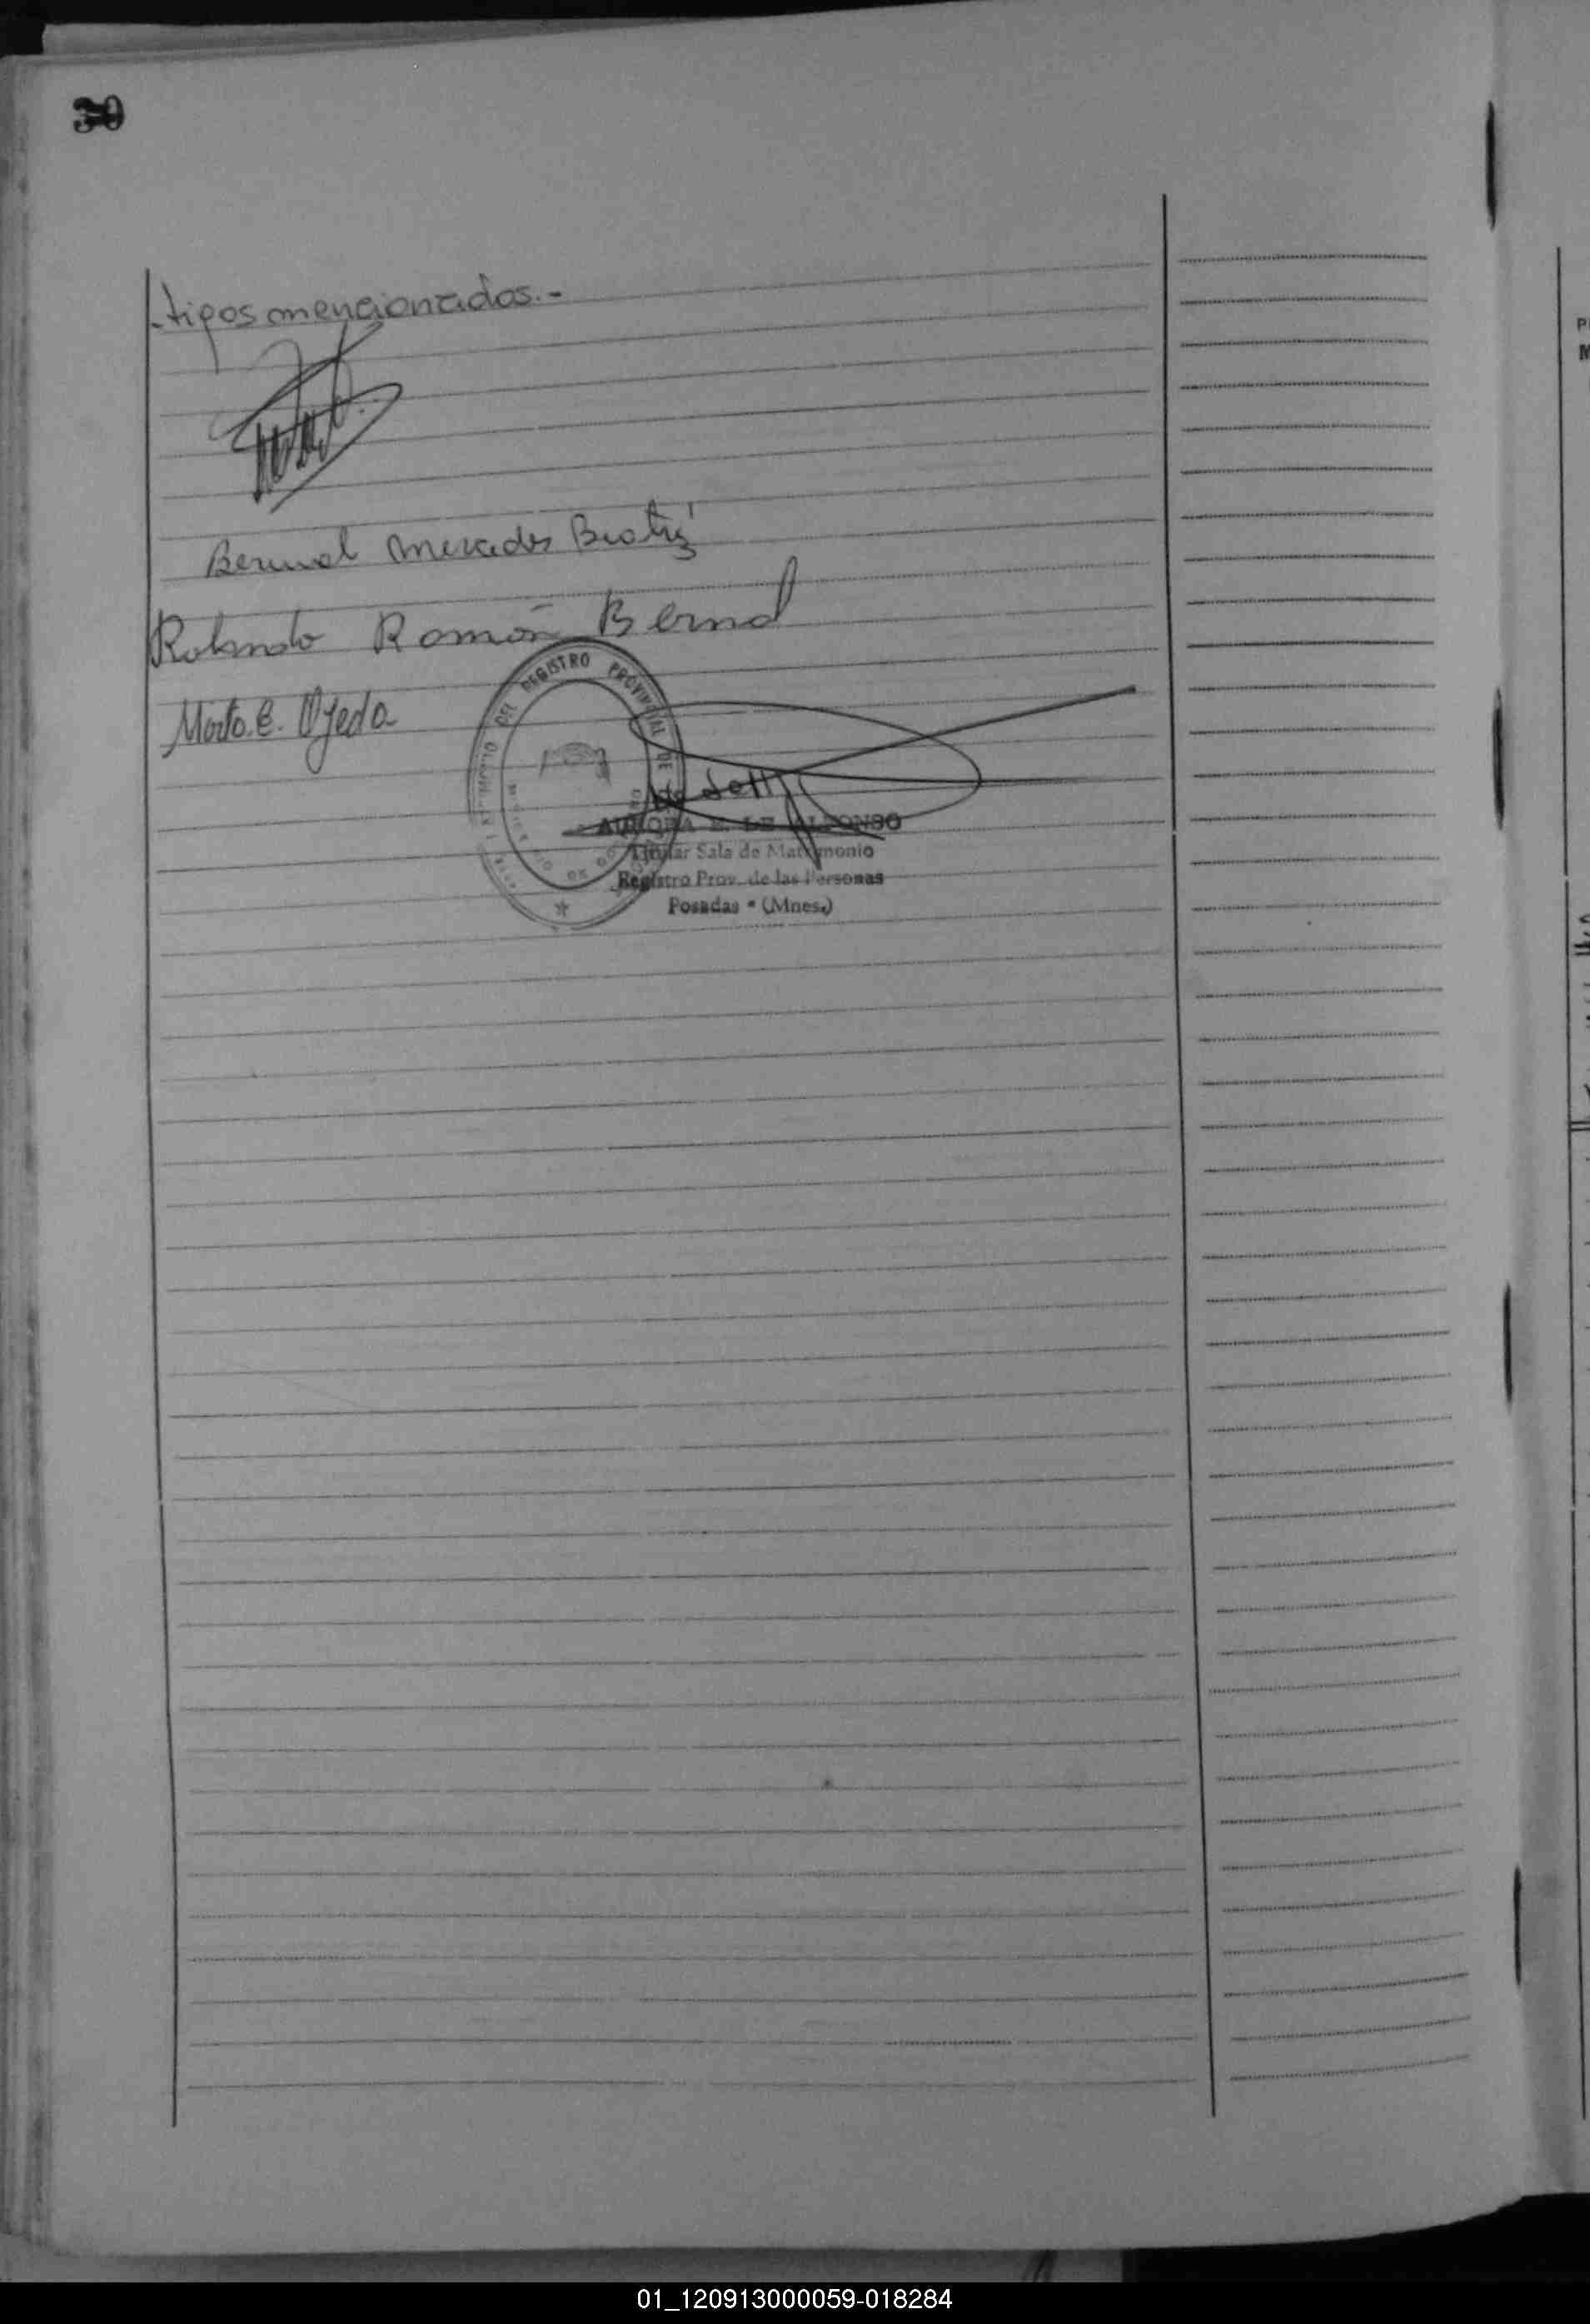 30
-tigos mencionados.-
Bernal Mercedes Beatriz
Rolando Ramón Bernal
Marta E. Ojeda
DEL REGISTRO PROVINCIAL DE
AURORA E. DE ALFONSO
Titular Sala de Matrimonio
Registro Prov. de las Personas
Posadas - (Mnes.)
01_120913000059-018284